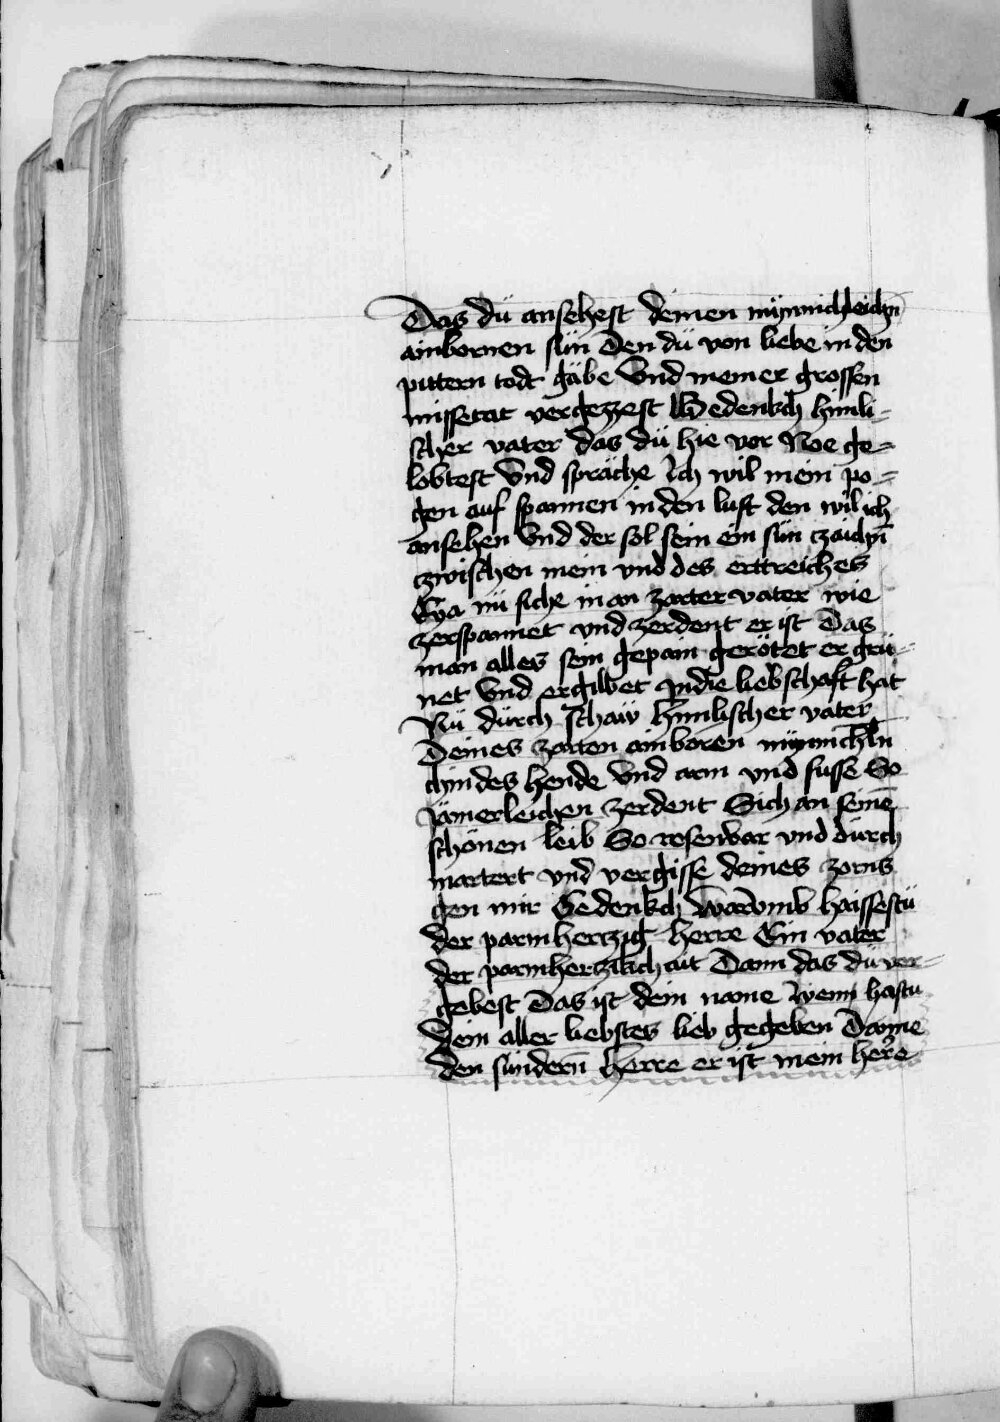 Das dü ansehest deinen mÿnnichleichn̄
ainbornen sün Den dü von liebe in den
pittern todt gäbe Vnd meiner grossen
missetat vergezzest Gedenkch himli-
scher vater das dü hie vor Noe ge-
lobtest Vnd spräche Ich wil mein po-
gen auf spannen in den luft den wil ich
ansehen Vnd der sol sein ein sün czaichn̄
czwischen mein vnd des erttreiches
Eya nü siche in an zarter vater wie
zerspannet vnd zerdent er ist Das
man alles sein gepain gerötet er grü-
net Vnd ergilbet In die liebschaft hat
Nü dürch schaw himlischer vater
Deines zarten ainboren mÿnnichln
chindes hende Vnd arm vnd fusse So
Jämerleichen zerdent Sich an seinē
schönen leib So rosenvar vnd dürch
martert vnd vergisse deines zorns
gen mir Gedenkch warvmb haissestü
der parmherczig herre Ein vater
der parmherzikchait Dann das dü ver-
gebest Das ist dein name Wem hastu
Dein aller liebstes lieb gegeben Danne
den sündern̄ Herre er ist mein herre